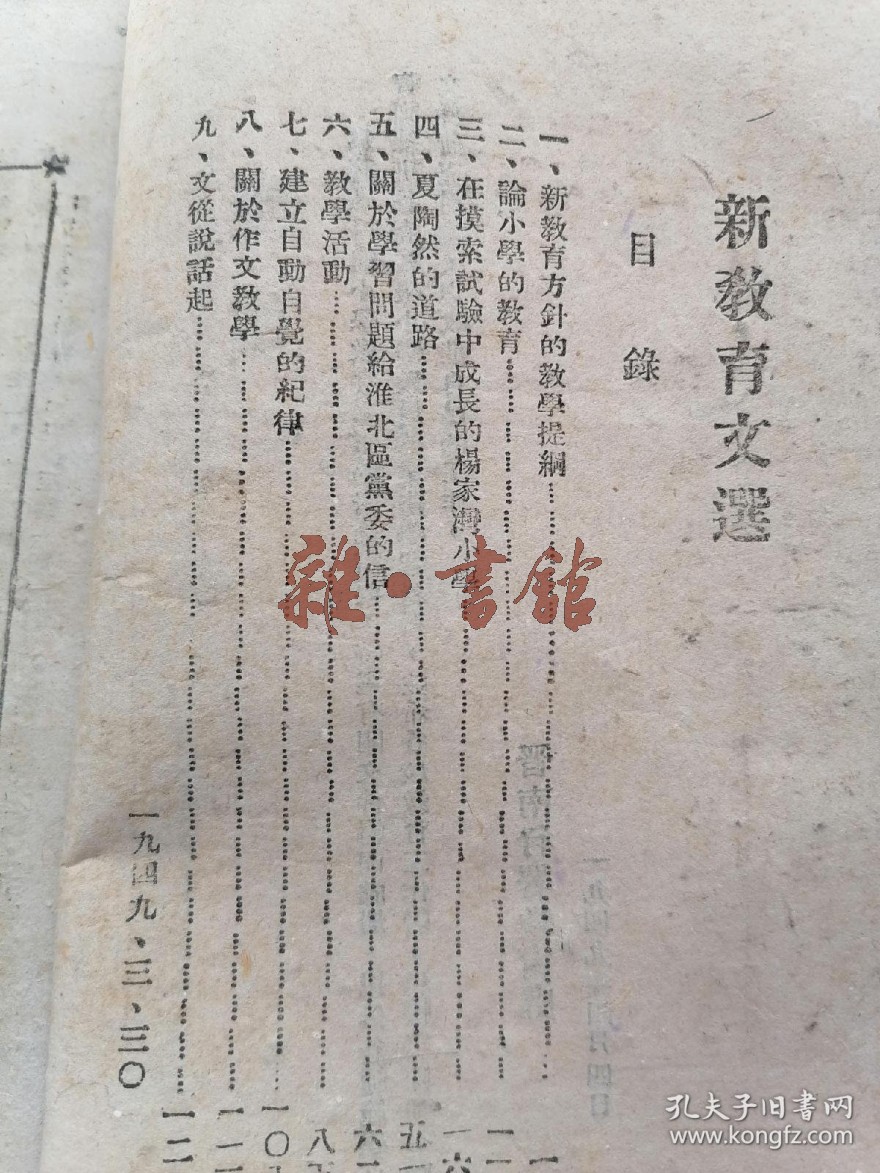 新教育文選
目錄
一、新教育方針的教學提綱
二、論小學的教育
三、在摸索試驗中成長的楊家灣小學
四、夏陶然的道路
五、關於學習問題給淮北區黨委的信
六、教學活動
七、建立自動自覺的紀律
八、關於作文教學
九、文從說話起
一九四九、三、三〇
雜·書館
孔夫子旧书网
www.kongfz.com